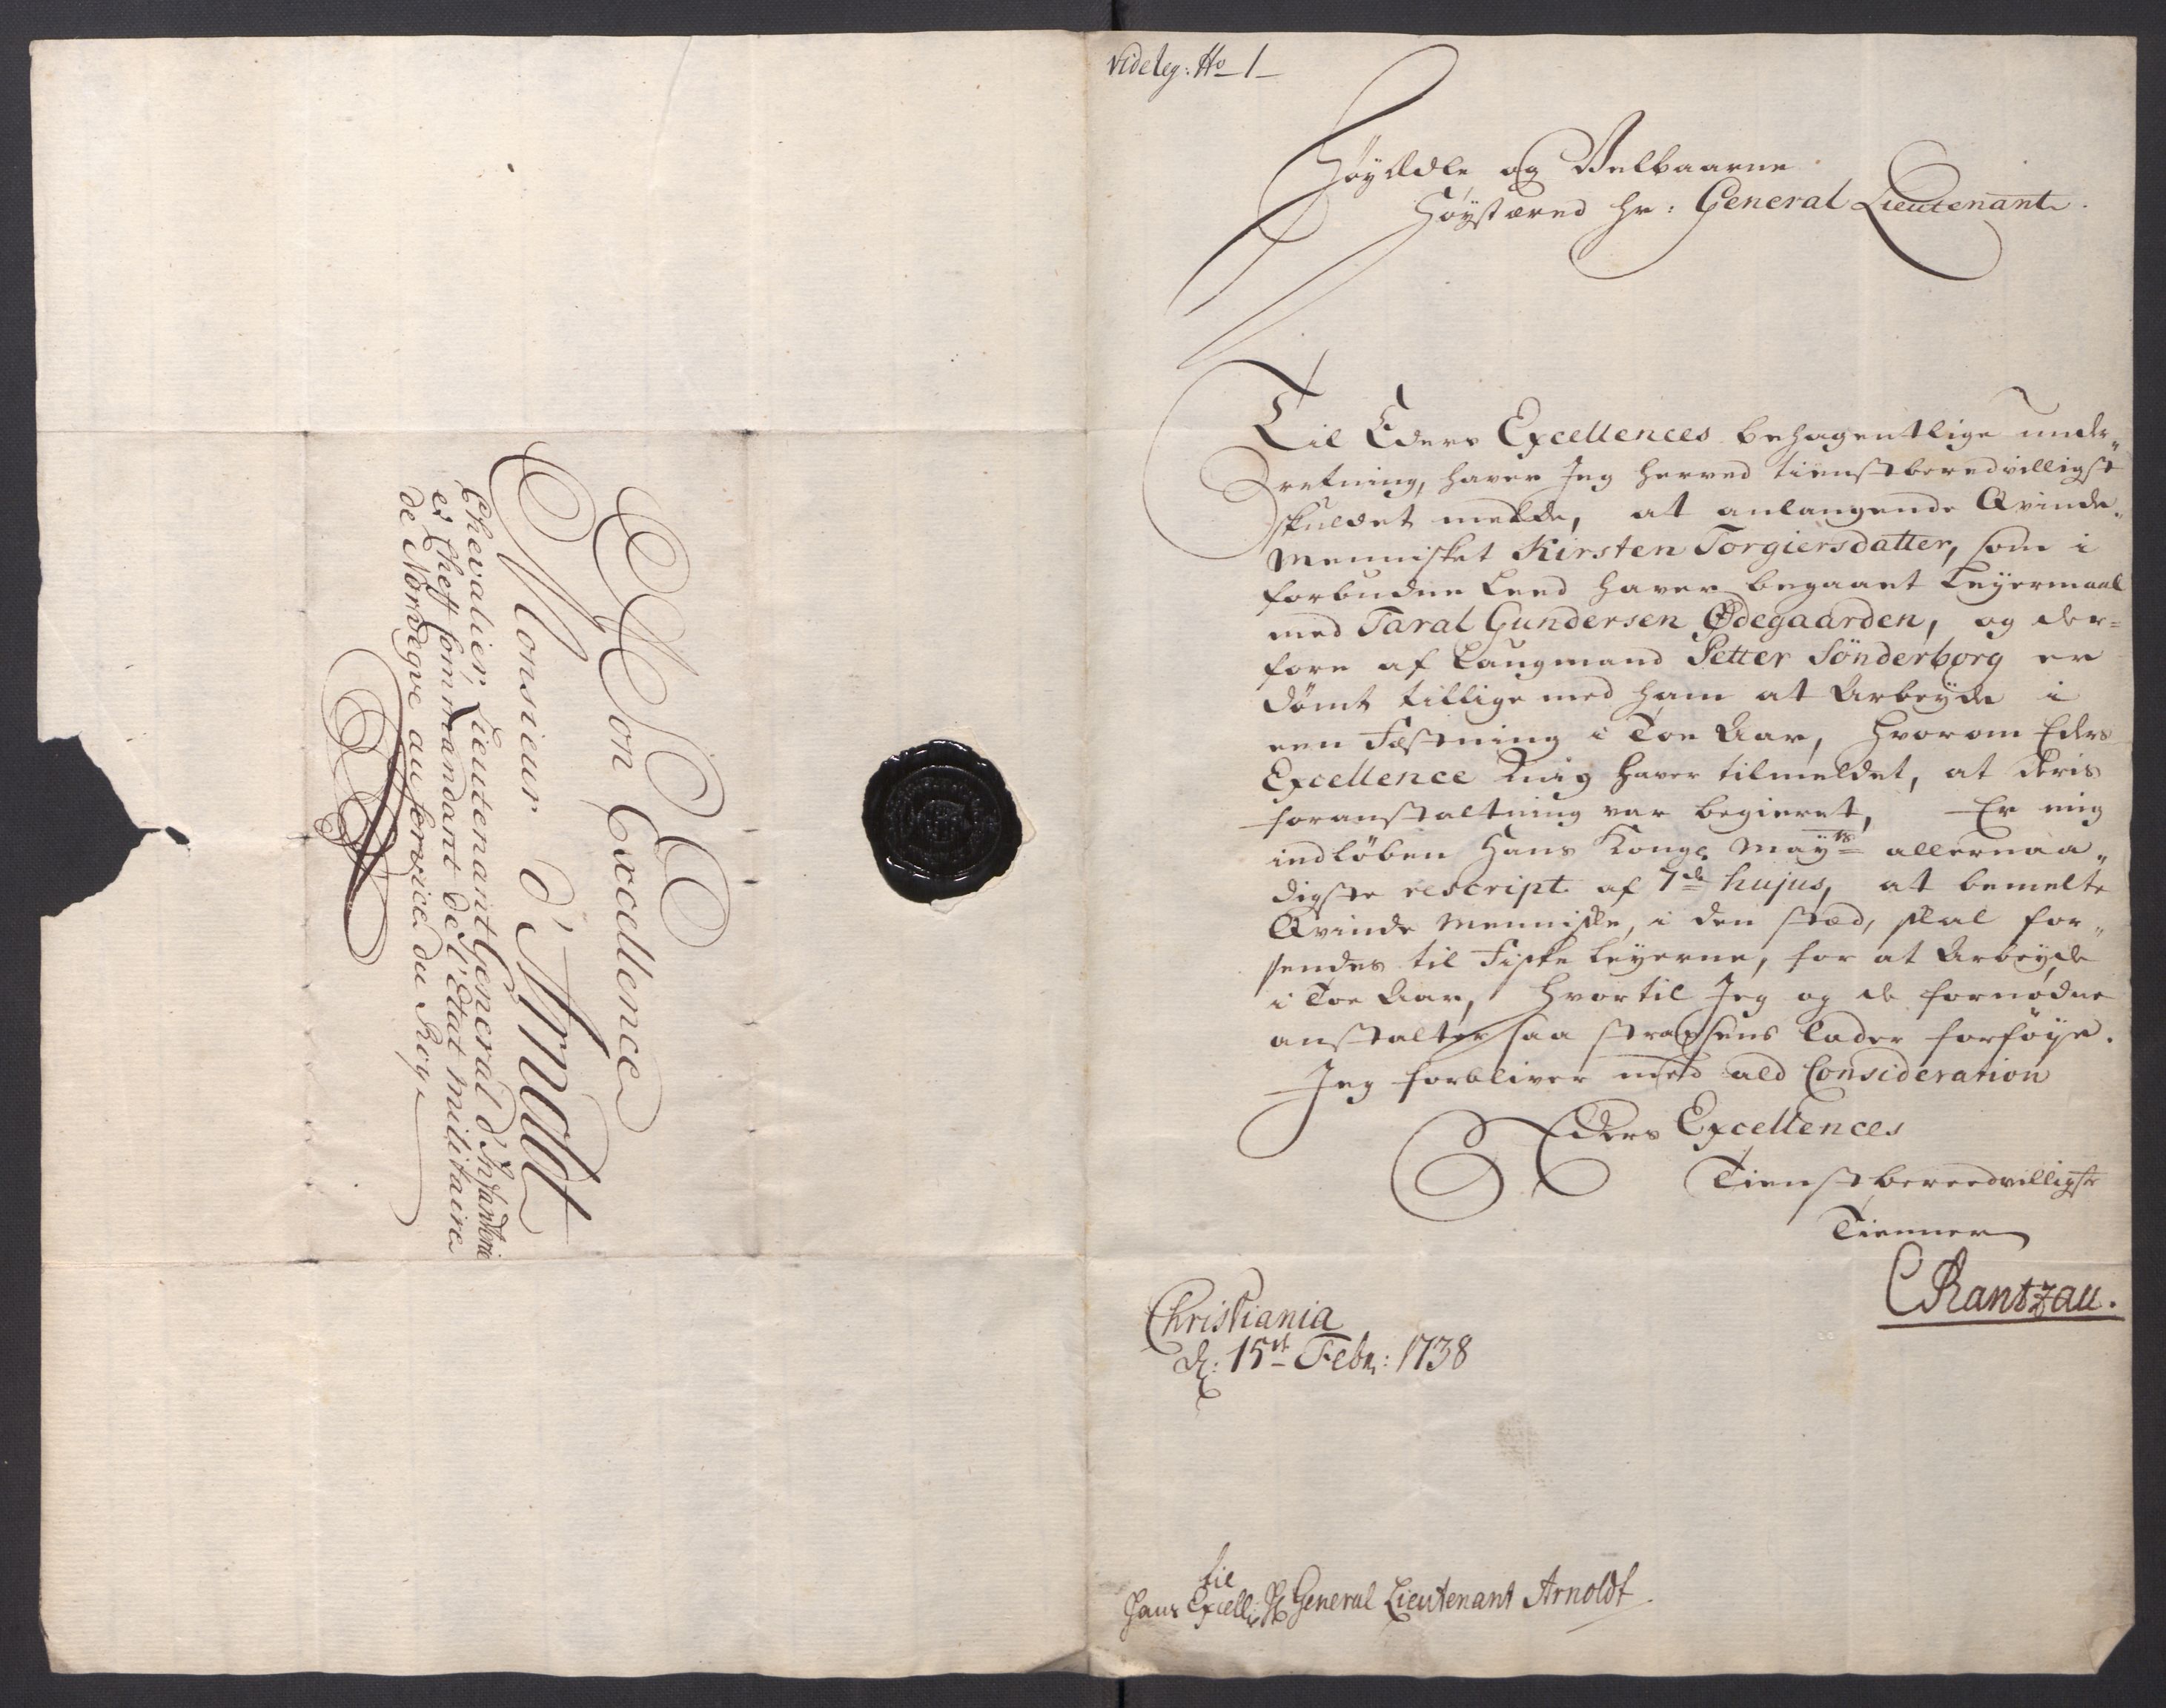 A Son Excellence
Monsieur d'Arnoldt
Chevalier, Lieutenant General d'Infanterie
et Cheff Commandant de l'Etat militaire
de Norvegve au service du Roy
vide leg: No 1
HöyÆdle og Velbaarne
Höystærede Hr: General Lieutenant.
Til Eders Excellences behagentlige under„
retning, haver Jeg herved tienstberedvilligst
skuldet melde, at anlangende Qvinde„
Mennisket Kirsten Torgiersdatter, som i
forbudne Leed haver begaaet Leyermaal
med Taral Gundersen Ødegaarden, og der=
fore af Laugmand Petter Sönderborg er
dömt tillige med ham at Arbeyde i
een Fæstning i Toe Aar, hvorom Eders
Excellence mig haver tilmeldet, at deris
foranstaltning var begieret, Er mig
indlöben Hans Kongl. Mayts allernaa„
digste rescript af 7de hujus, at bemelte
Qvinde Menniske, i den stæd, skal for„
sendes til Fiske Leyerne, for at Arbeyde
i Toe Aar, hvortil Jeg og de fornødne
anstalter saa strachsens lader forföye.
Jeg forbliver med ald Consideration
Eders Excellences
Tienstbereedvilligste
Tienner
CRantzau.
Christiania
d: 15de Febr: 1738
til
Hans Excell: Hr General Lieutenant Arnoldt.